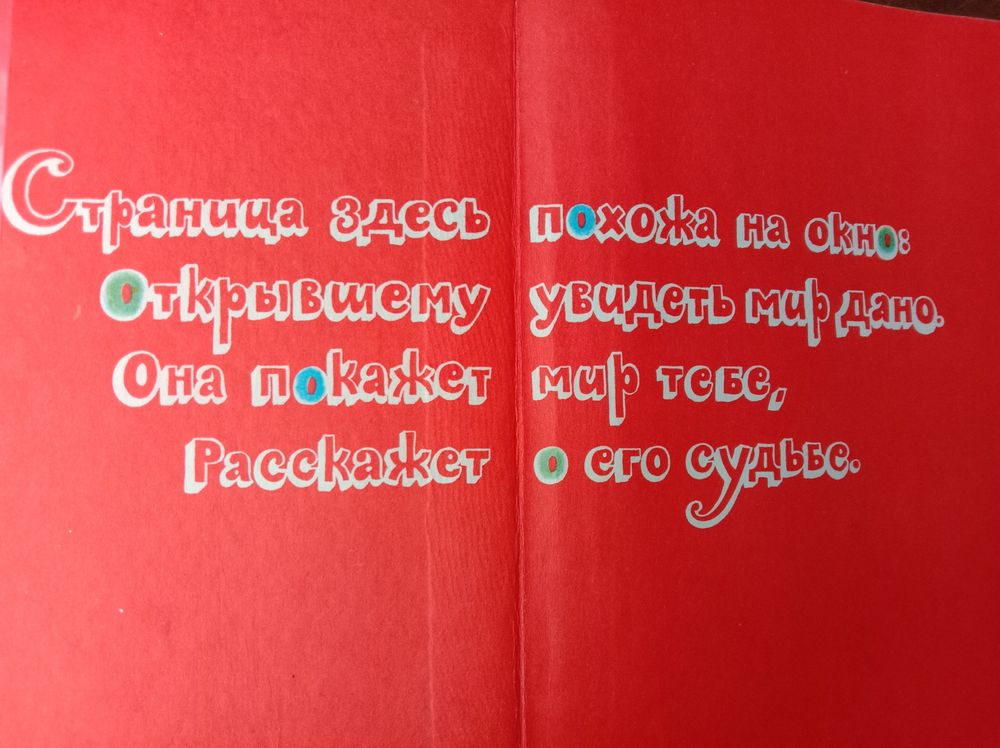 Страница здесь похожа на окно:
Открывшему увидеть мир дано.
Она покажет мир тебе,
Расскажет о его судьбе.